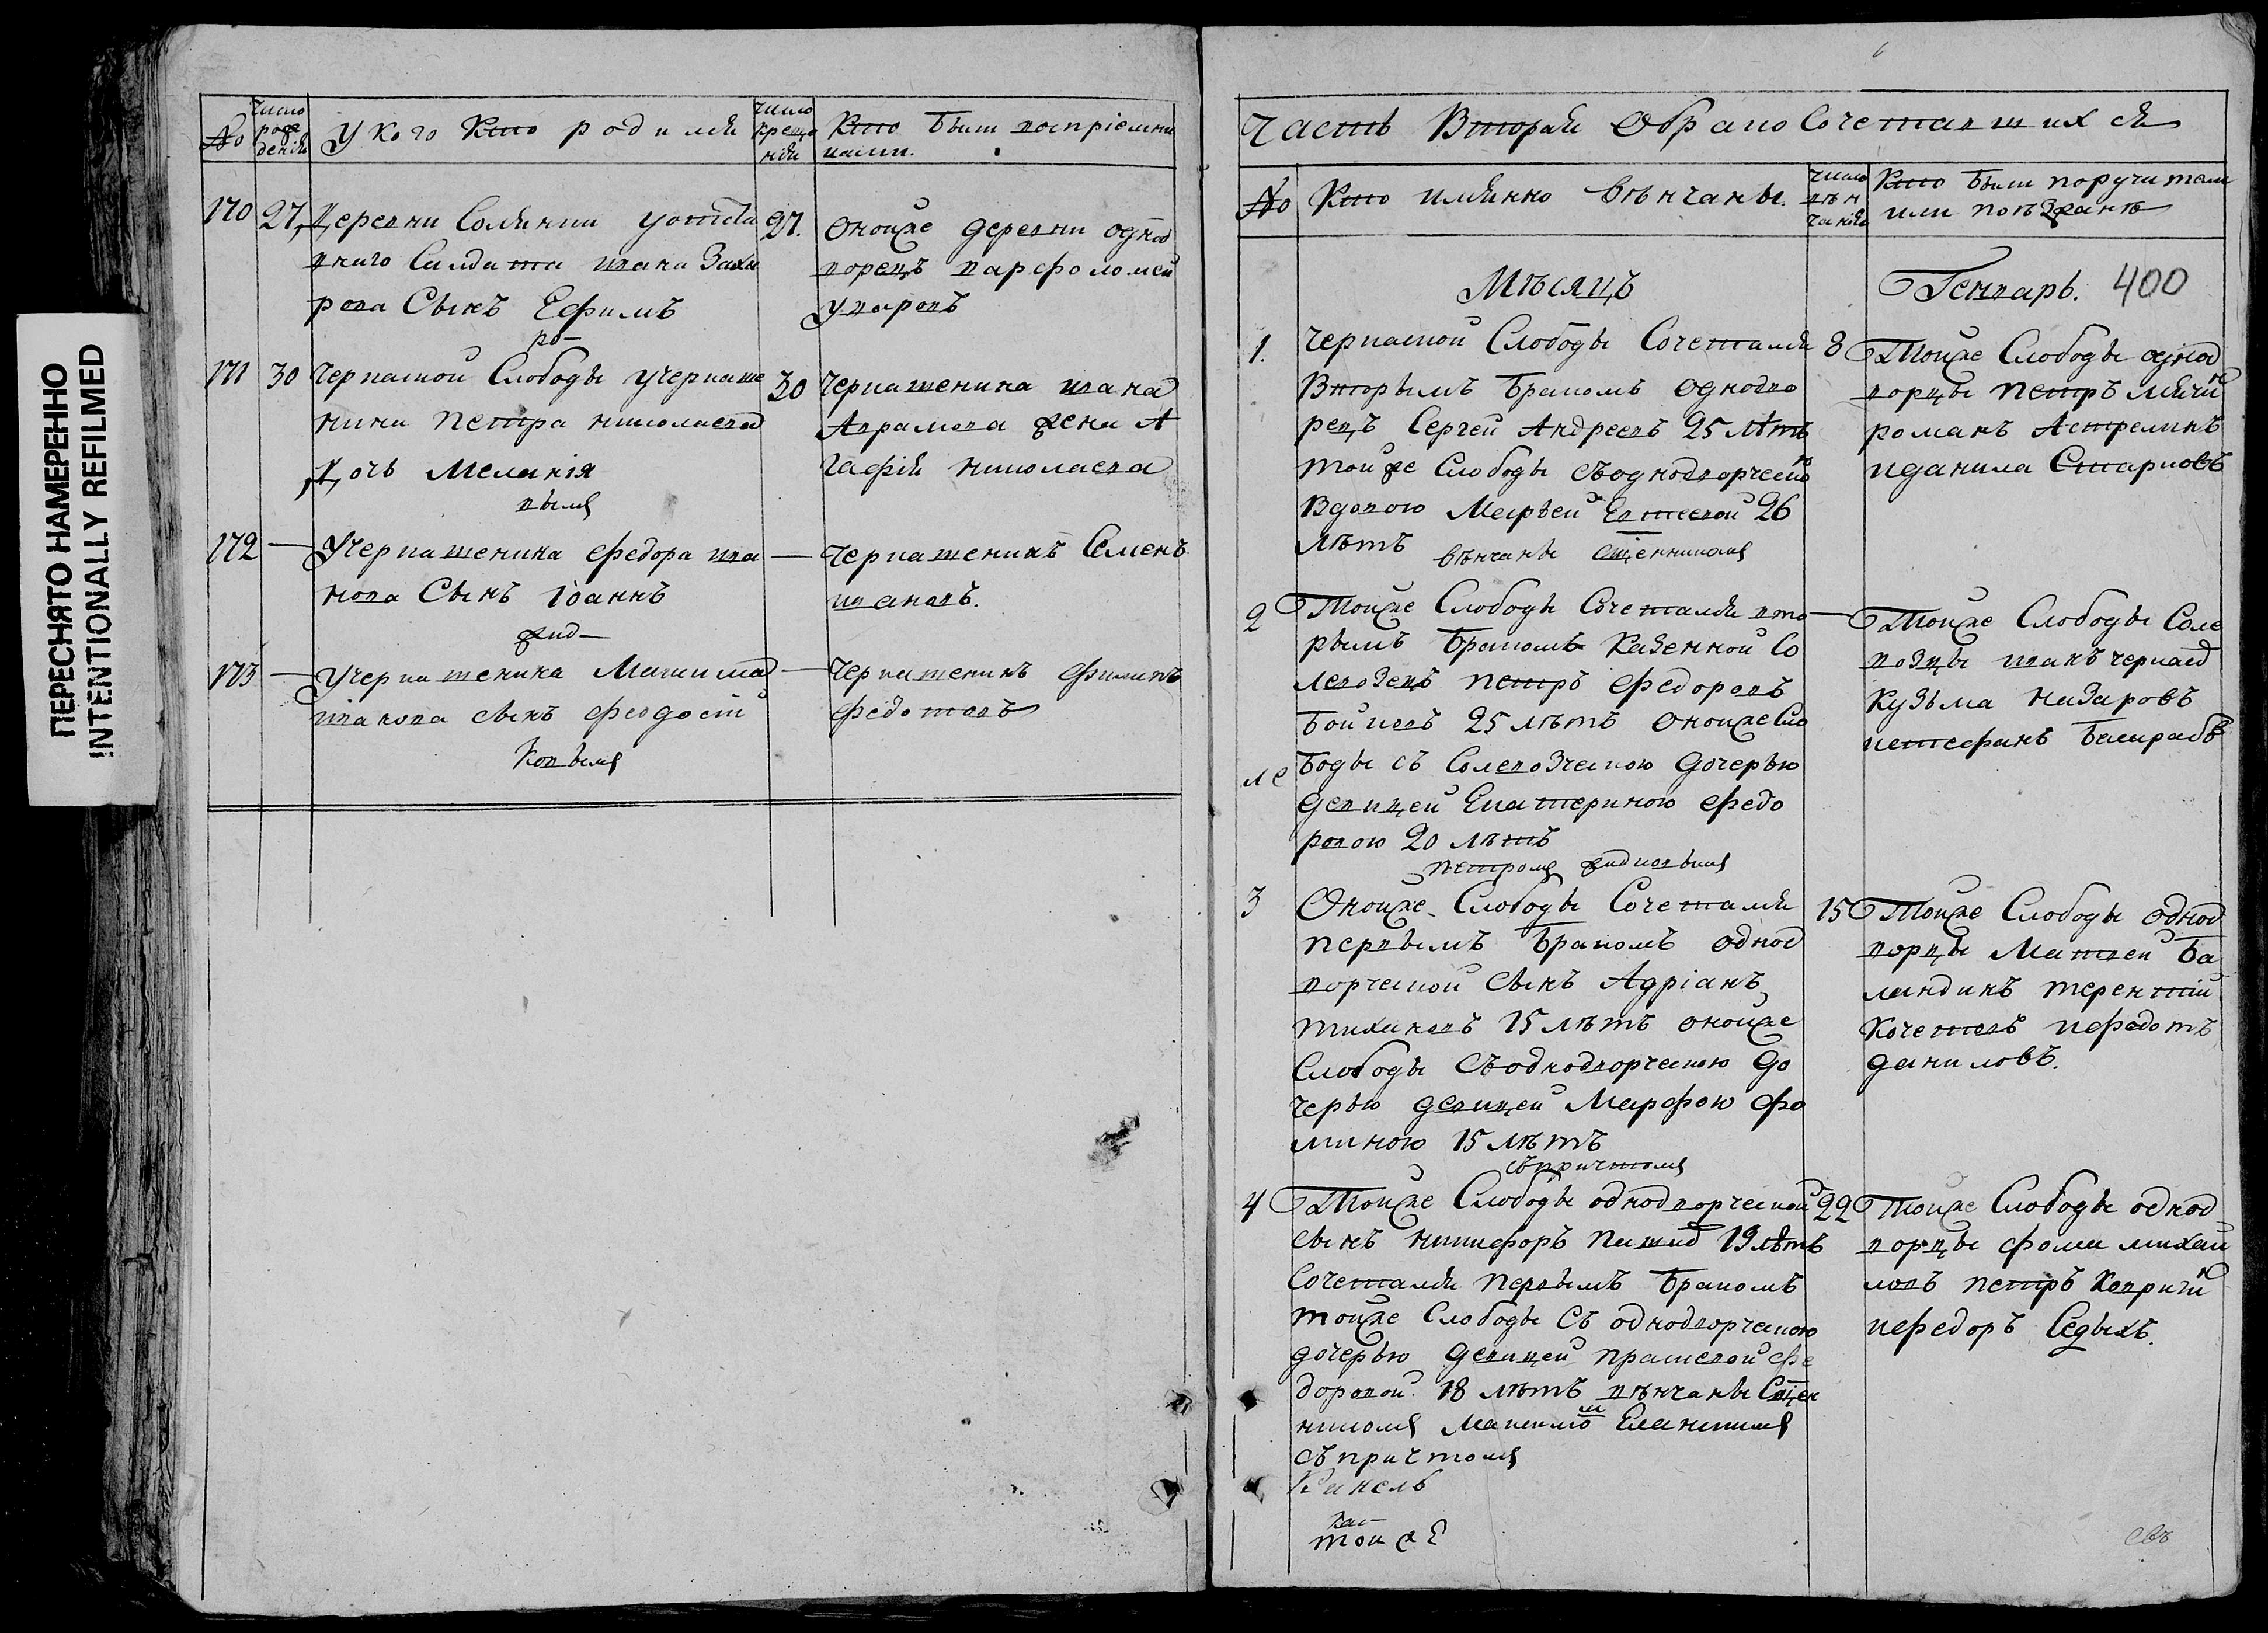 ПЕРЕСНЯТО НАМЕРЕННО
INTENTIONALLY REFILMED
№
число рождения
У кого кто родился
число крещения
Кто были восприемниками.
170 27
Деревни Солянки уотста
вного Салдата ивана Заха
рова Сынъ Ефимъ
27.
оноиже деревни однод
ворецъ варфоломей
уваровъ
171 30
Черкаской Слободы учеркаше
нина петра николаева
Дочь Меланія
30
Черкашенина ивана
Аврамова жена А
гафія николаева
172 —
Учеркашенина федора ива
нова Сынъ іоаннъ
—
Черкашенинъ Семенъ
ивановъ.
173 —
учеркашенина Максима
иванова сынъ феодосій
—
Черкашенинъ филипъ
федотовъ
Часть Вторая О бракосочетавшихся
№
Кто имянно вѣнчаны.
число вѣнчанія
Кто были поручители
или поѣзжанѣ
Мѣсяцъ
Генварь. 400
1.
Черкаской Слободы Сочетался
Вторымъ бракомъ однодво
рецъ Сергей Андреевъ 25 лѣтъ
тойже Слободы съоднодворческо
вдовою Марѣей 26
лѣтъ
вѣнчаны сщенникомъ
8
Тойже Слободы однод
ворцы петръ мячин
романъ Астрелинъ
иданила Старковъ
2
Тойже Слободы Сочетался вто
рымъ бракомъ казенной Со
левозецъ петръ федоровъ
бойковъ 25 лѣтъ оноиже Сло
боды съ Солевозческою дочерью
девицей Екатериною федо
ровою 20 лѣтъ
—
Тойже Слободы Соле
возцы иванъ
Кузьма назаровъ
3
Оноиже Слободы Сочетался
первымъ бракомъ однод
ворческой Сынъ Адріанъ
тихановъ 15 лѣтъ оноиже
Слободы Съоднодворческою до
черью девицей Марфою фо
миною 15 лѣтъ
съпричтомъ
15
Тойже Слободы однод
ворцы Матвей ба
ландинъ терентій
Кочетовъ ифедотъ
даниловъ.
4
Тойже Слободы однодворческой
сынъ никифоръ 19 лѣтъ
Сочетался первымъ бракомъ
тойже Слободы Съ однодворческою
дочерью девицей прасковой фе
доровой 18 лѣтъ вѣнчаны Сщен
никомъ
съпричтомъ
Кинель
тойже
22
Тойже Слободы однод
ворцы фома михай
ловъ петръ
ифедоръ Седыхъ.